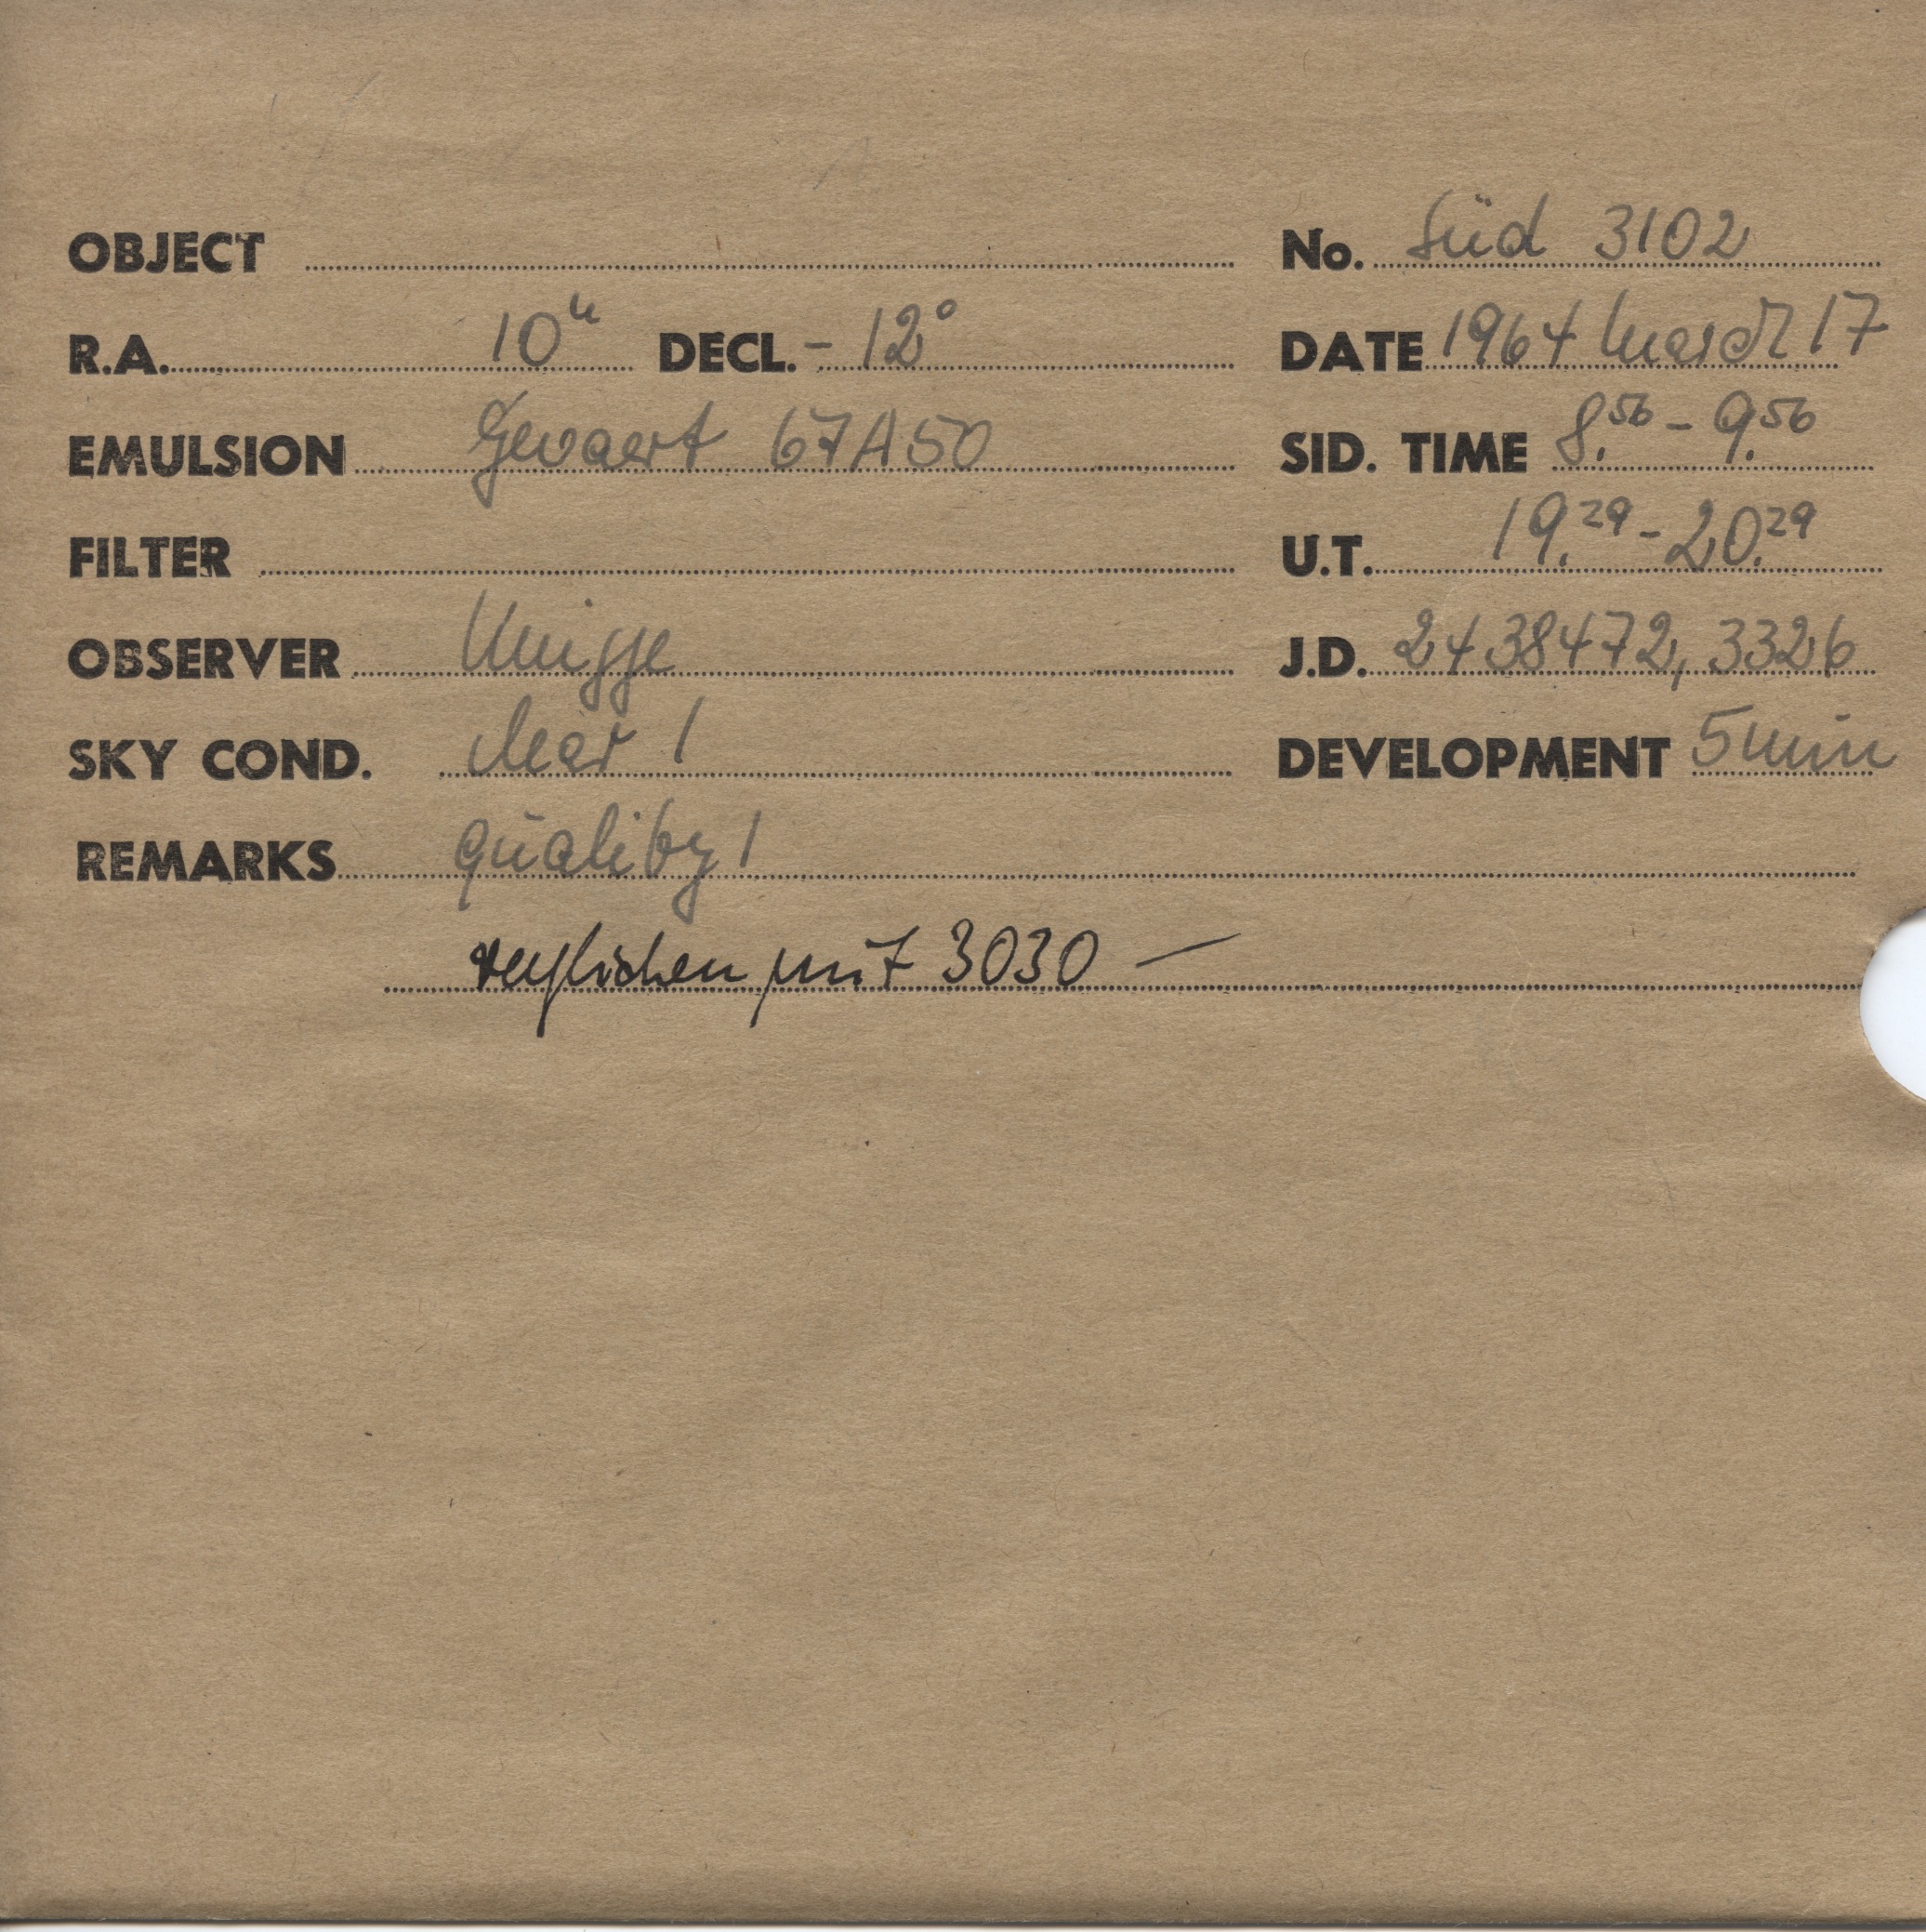 OBJECT
No. Süd 3102
R.A. 10h DECL. - 12°
DATE 1964 March 17
EMULSION Gevaert 67A50
SID. TIME 8.56 - 9.56
FILTER
U.T. 19.29 - 20.29
OBSERVER Knigge
J.D. 2438472,3326
SKY COND. clear 1
DEVELOPMENT 5 min
REMARKS quality 1
verglichen mit 3030 —